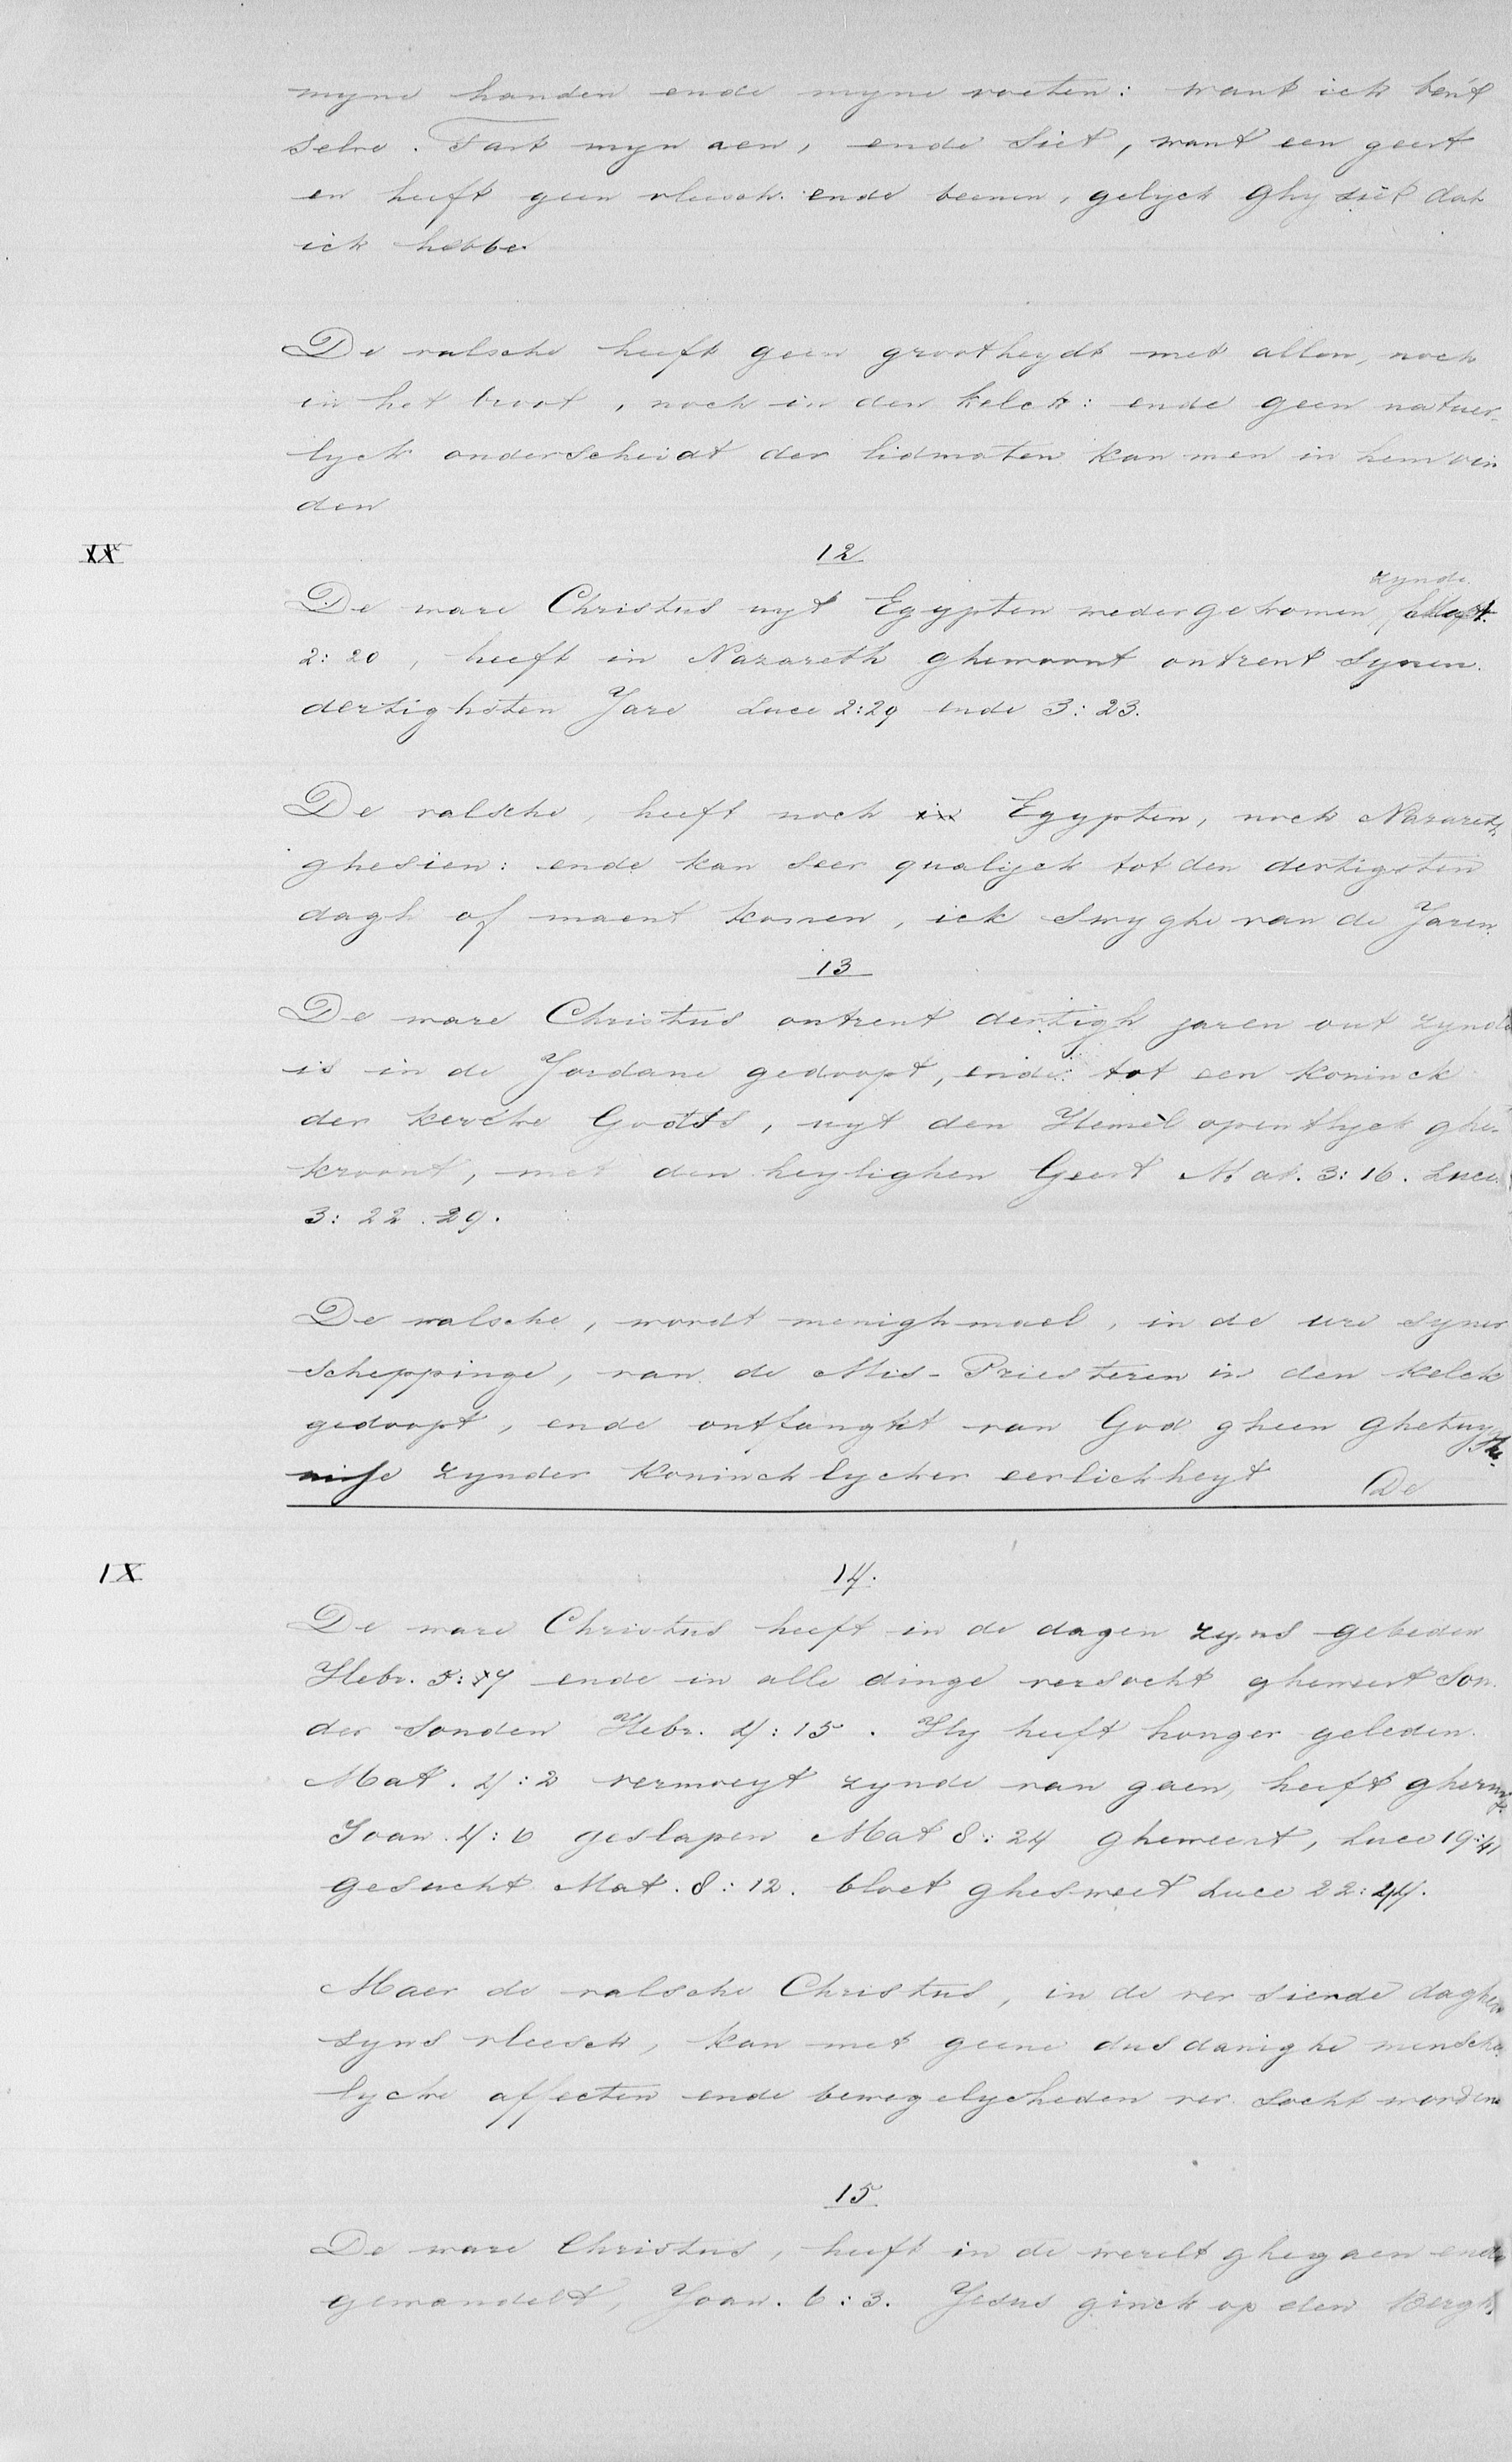 myne handen ende myne voeten: want ick ben't
selve. Tast myn aen, ende siet, want een geest
en heeft geen vleesch ende beenen, gelyck ghy siet dat
ick hebbe
De valsche heeft geen grootheydt met allen, noch
in het broot, noch in den kelck: ende geen natuer-
lyck onderscheidt der lidmaten kan men in hem vin
den
XX
12
zynde
De ware Christus uyt Egypten wedergekomen, Mat.
2:20, heeft in Nazareth ghewoont ontrent synen
dertighsten Jare Luce 2:29 ende 3:23.
De valsche, heeft noch in Egypten, noch Nazareth
ghesien: ende kan seer qualyck tot den dertigsten
dagh of maent komen, ick swyghe van de Jaren.
13
De ware Christus ontrent dertigh jaren out zynde
is in de Jordane gedoopt, ende tot een koninck
der kercke Godts, uyt den Hemel opentlyck ghe-
kroont, met den heylighen Geest Mat. 3:16. Luce
3:22.29.
De valsche, wordt menighmael, in de ure syner
scheppinge, van de Mis-Priesteren in den kelck
gedoopt, ende ontfanght van God gheen ghetuy
nisse zynder koninchlycker eerlickheyt De
IX
14.
De ware Christus heeft in de dagen zyns gebeden
Hebr. 5:7 ende in alle dinge versocht gheweest son
der sonden Hebr. 4:15. Hy heeft honger geleden
Mat. 4:2 vermoeyt zynde van gaen, heeft gherust
Joan. 4:6 geslapen Mat 8:24 gheweent, Luce 19:41
gesucht Mat. 8:12. bloet ghesweet Luce 22:44.
Maer de valsche Christus, in de versierde daghen
syns vleesch, kan met geene dusdanighe mensche
lycke affecten ende bewegelycheden versocht worden
15
De ware Christus, heeft in de werelt ghegaen ende
gewandelt, Joan. 6:3. Jesus ginck op den Bergh,